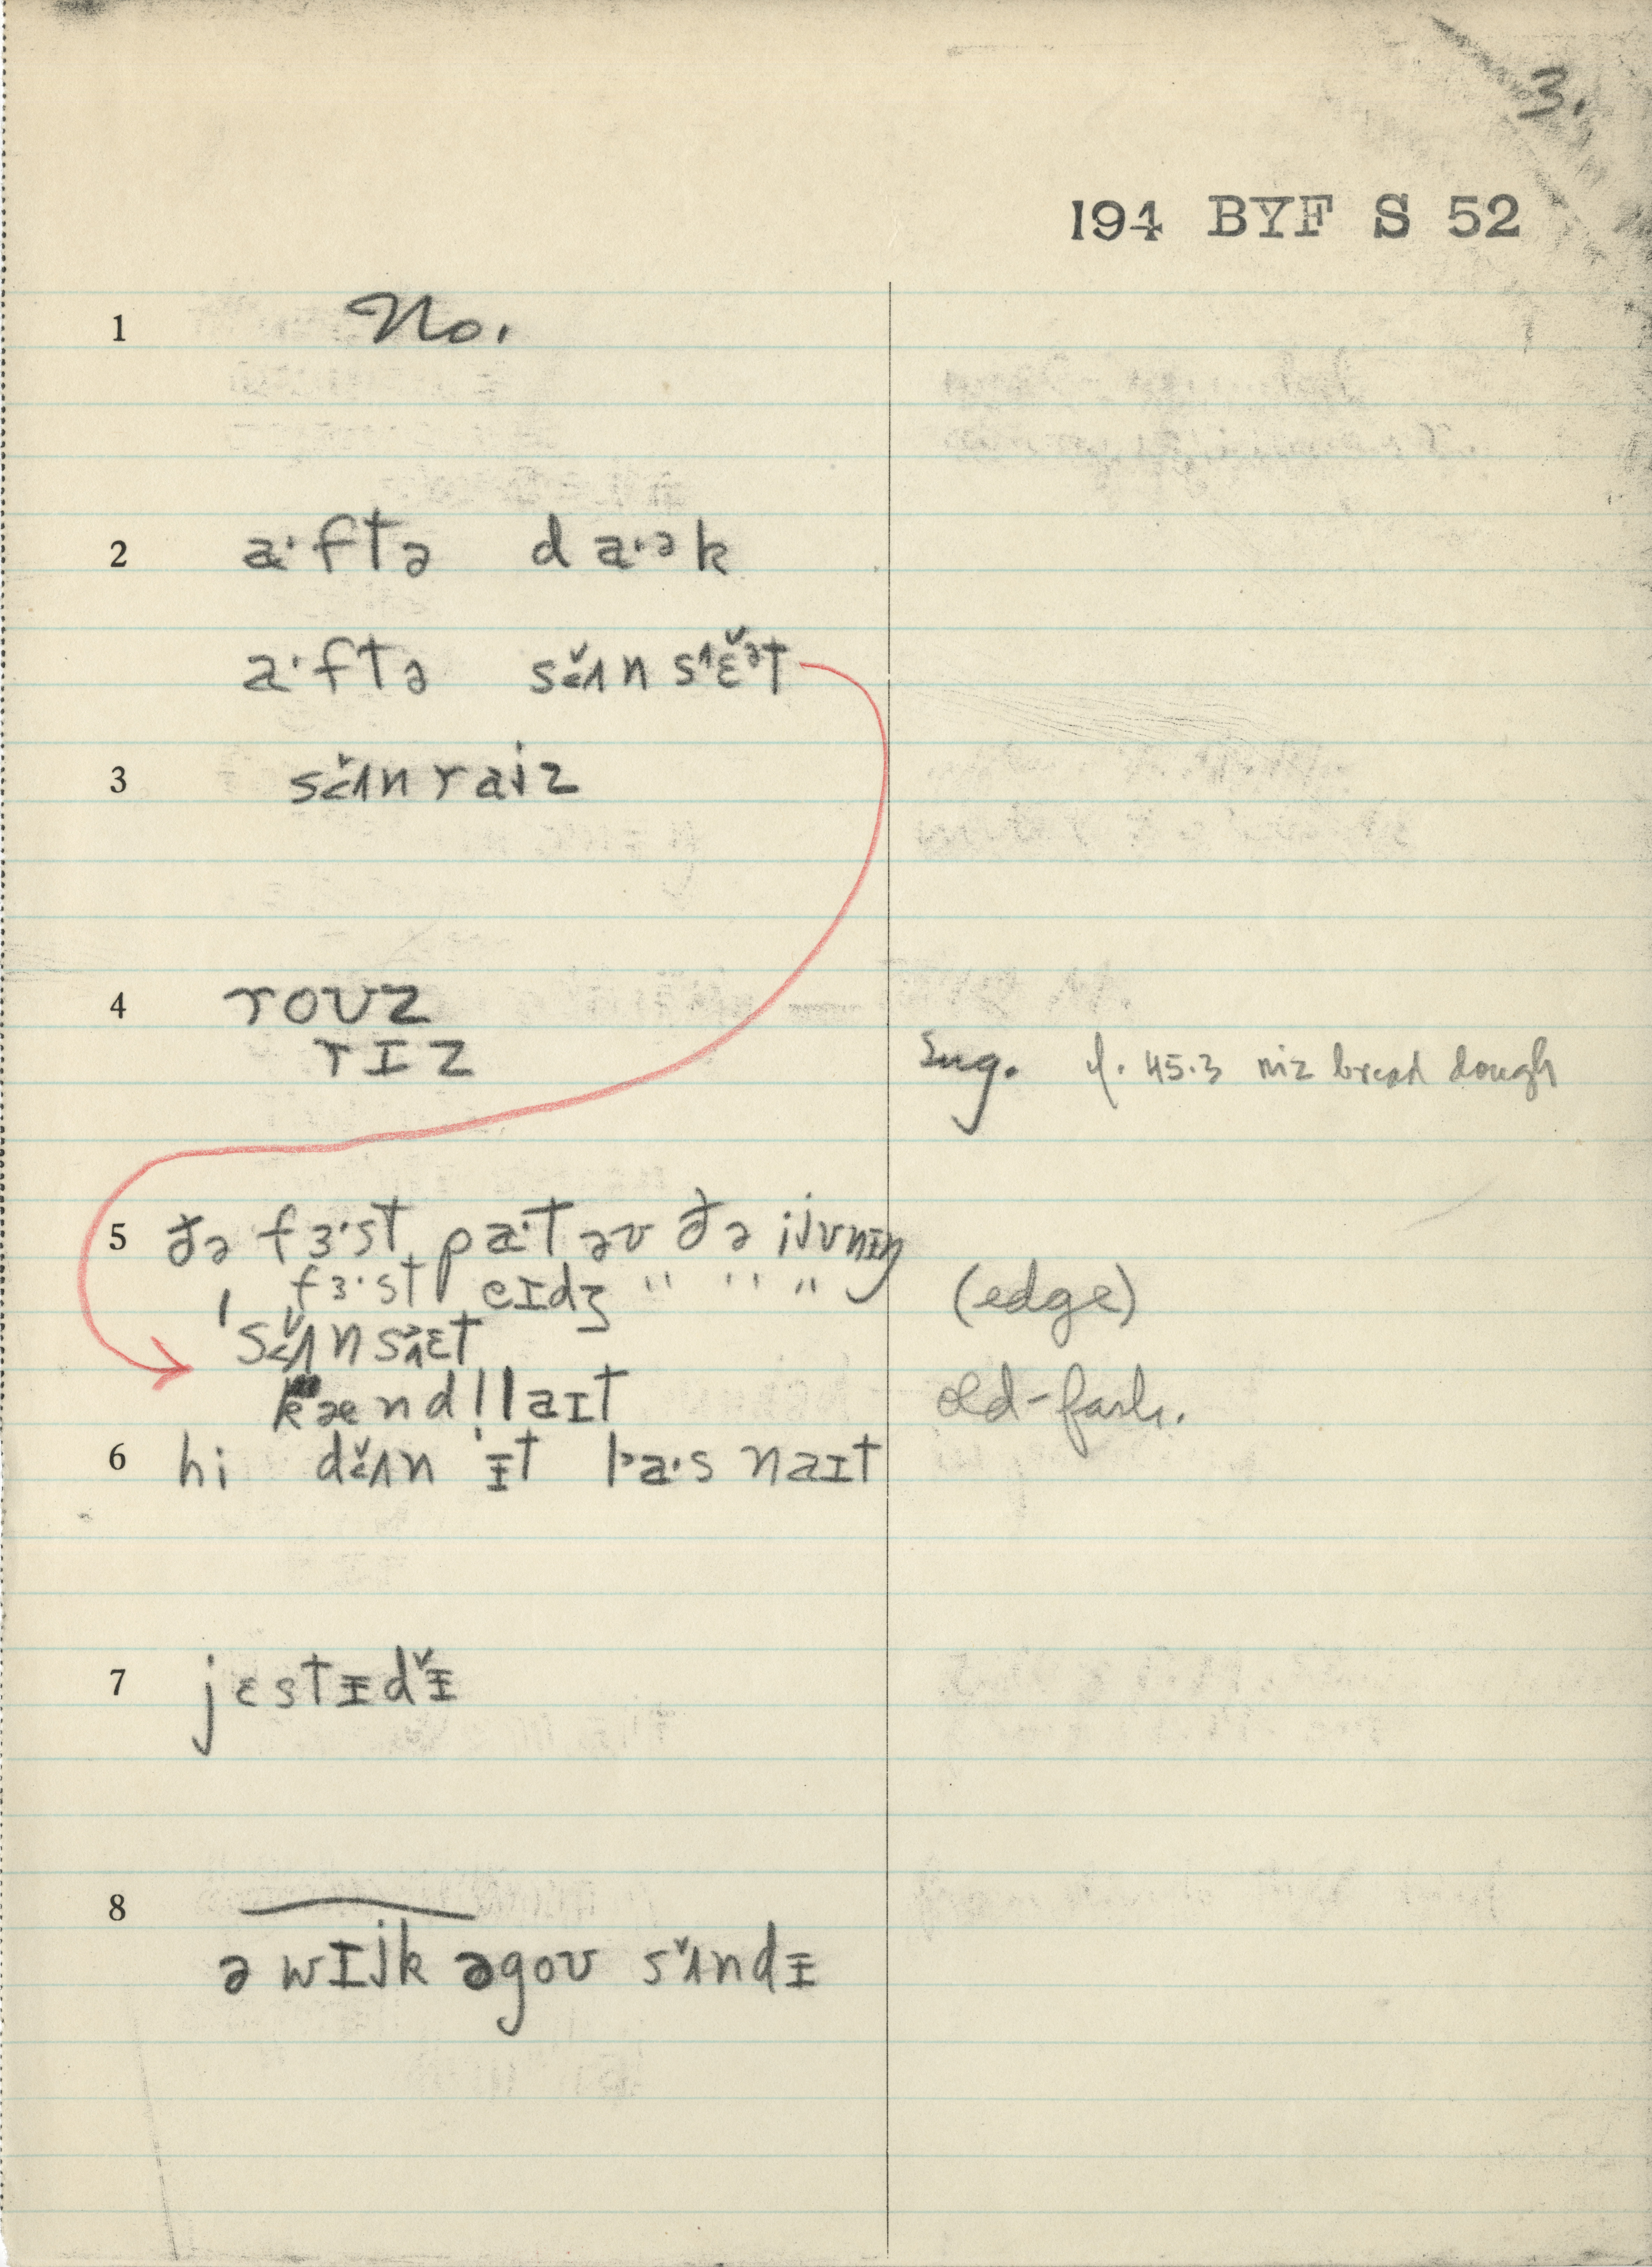 3.
194 BYF S 52
1 No.
2 a·ftə da·ək
a·ftə sɐ̌ʌn sɛ̌ət
3 sɐ̌ʌnraiz
4 roʊz
rɪz Sug. cf. 45.3 riz bread dough
5 ðə fɜ·st pa·t əv ðə ijvnɪŋ
fɜ·st eɪdʒ " " " (edge)
ˈsʌnsɛt
kændl̩laɪt old-fash.
6 hi dʌn ɨt la·s naɪt
7 jɛstɨdɨ̌
8 ə wɪjk əgoʊ sʌ̌ndɨ